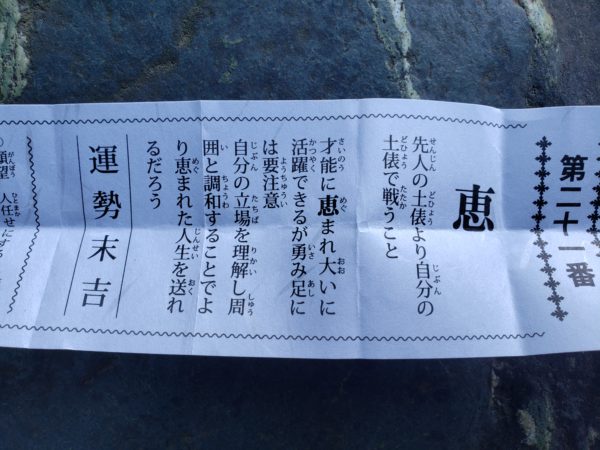 第二十一番
恵
先人の土俵より自分の
土俵で戦うこと
才能に恵まれ大いに
活躍できるが勇み足に
は要注意
自分の立場を理解し周
囲と調和することでよ
り恵まれた人生を送れ
るだろう
運勢末吉
願望 人任せにする